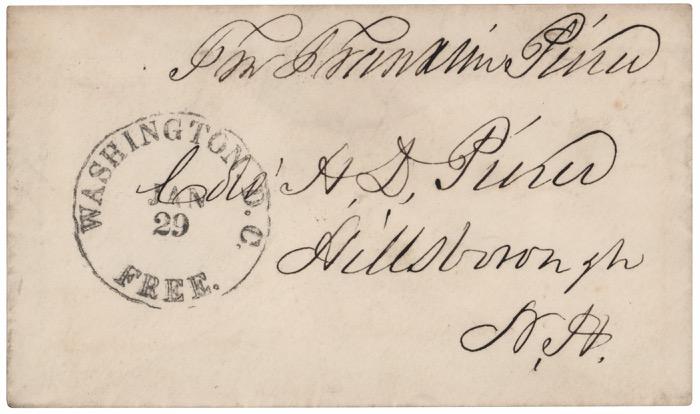 Fm Franklin Pierce
WASHINGTON D.C.
JAN
29
FREE.
Col. H. D. Pierce
Hillsborough
N. H.